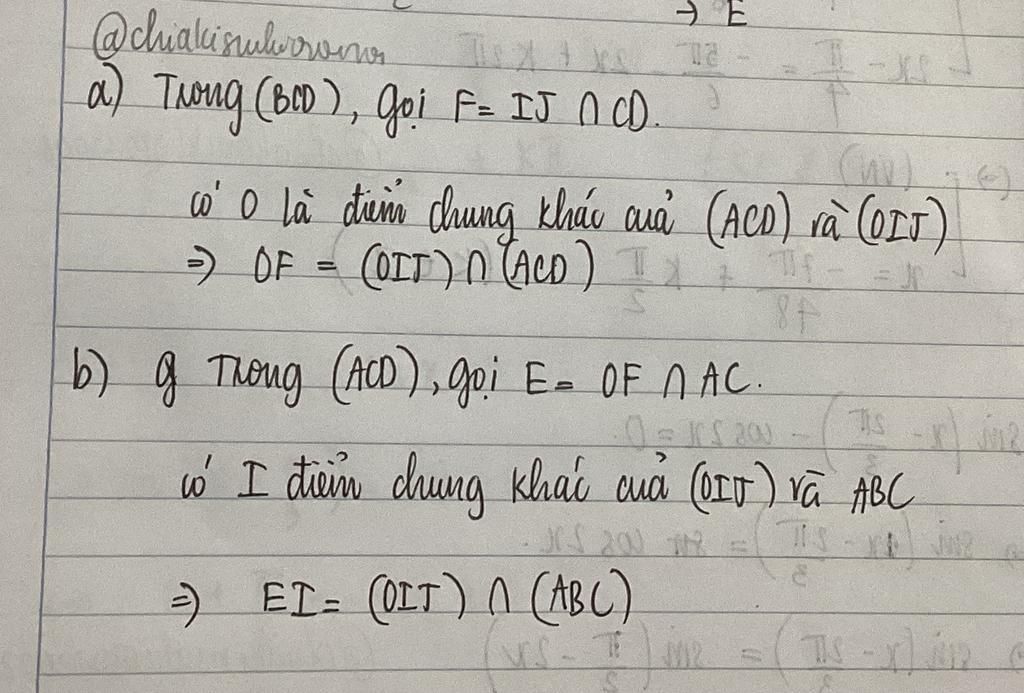 → E
@chiakisukworona
a) Trong (BCD), gọi F= IJ ∩ CD.
có O là điểm chung khác của (ACD) và (OIJ)
=> OF = (OIJ) ∩ (ACD)
b) g Trong (ACD), gọi E= OF ∩ AC.
có I điểm chung khác của (OIJ) và ABC
=> EI = (OIJ) ∩ (ABC)